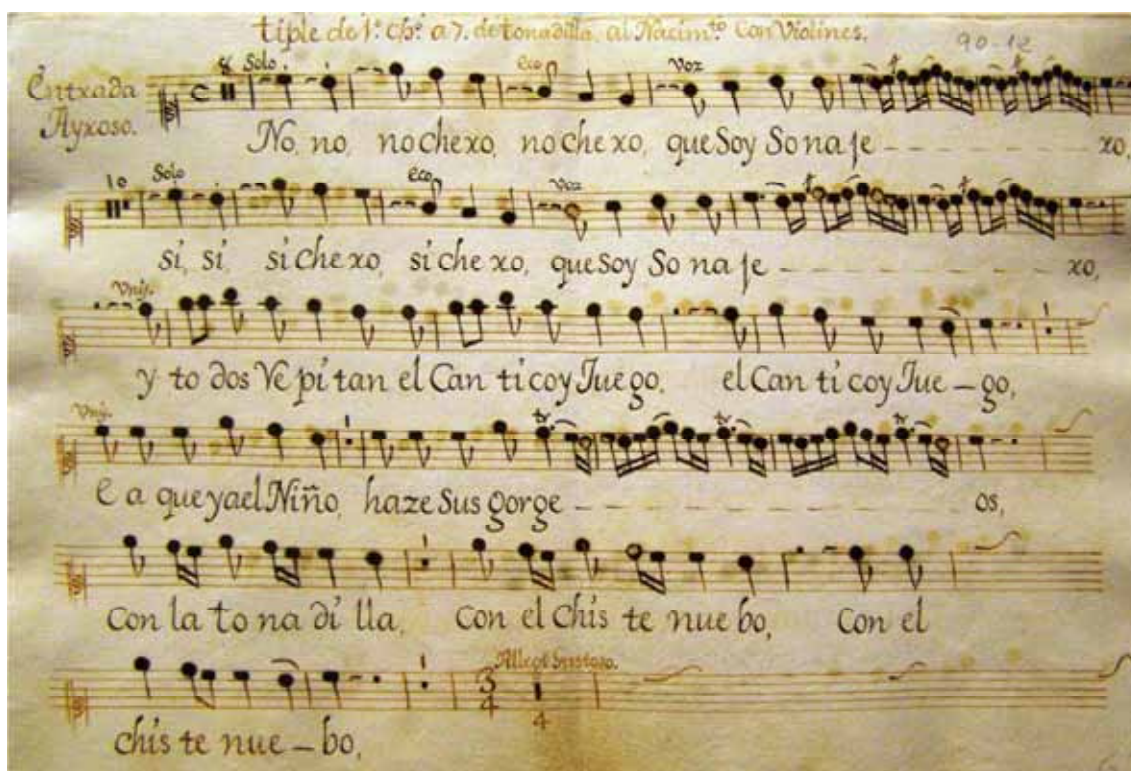 tiple de 1.º Ch.º a 7. de tonadilla, al Nacim.to Con Violines.
90-12
Entrada
Ayroso.
8 Solo. eco Voz
No, no, no chexo, no chexo, que Soy So na je - - - - - - xo,
10 Solo eco Voz
si, si, si che xo, si che xo, que Soy So na je - - - - - - xo,
Vnis.
y to dos Re pi tan el Can ti co y Jue go, el Can ti co y Jue - go,
Vnis. tr tr tr
E a que ya el Niño, haze Sus gorge - - - - - - os,
Con la to na di lla, Con el Chis te nue bo, Con el
Alleg.º Gustoso.
3
4 4
chis te nue - bo,